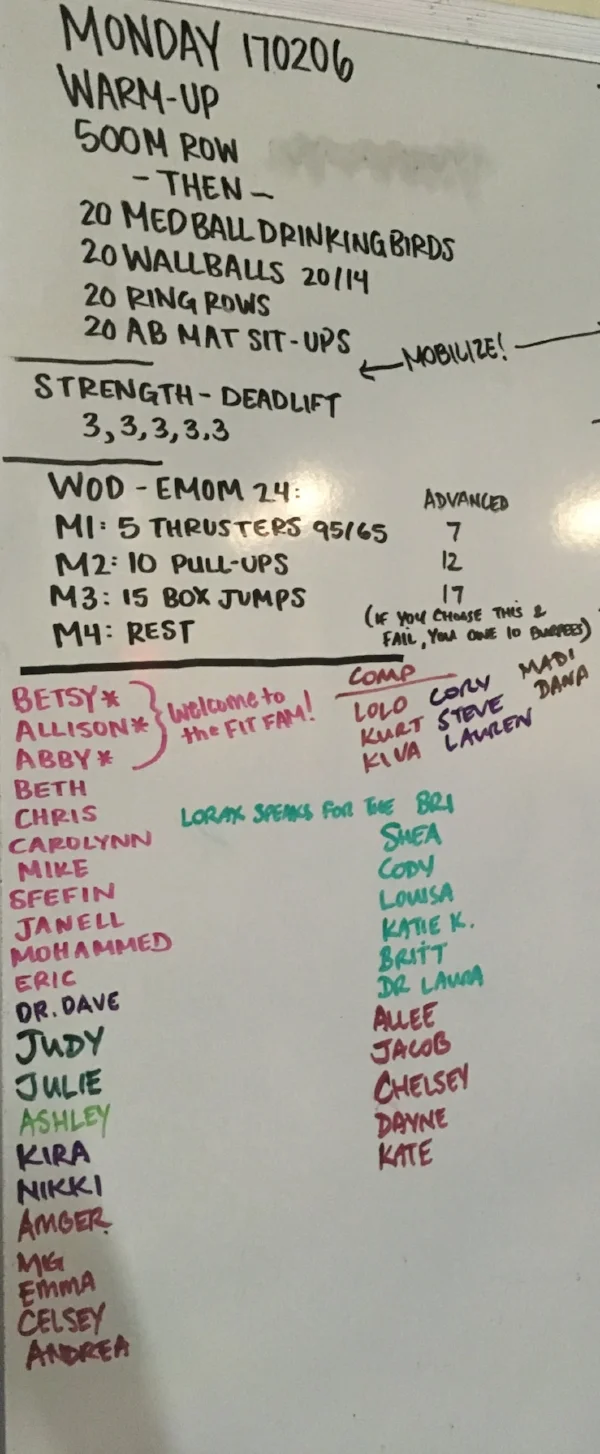 MONDAY 170206
WARM-UP
500M ROW
- THEN -
20 MEDBALL DRINKING BIRDS
20 WALLBALLS 20/14
20 RING ROWS
20 AB MAT SIT-UPS
← MOBILIZE!
STRENGTH - DEADLIFT
3,3,3,3,3
WOD - EMOM 24:
ADVANCED
M1: 5 THRUSTERS 95/65 7
M2: 10 PULL-UPS 12
M3: 15 BOX JUMPS 17
M4: REST
(IF YOU CHOOSE THIS &
FAIL, YOU OWE 10 BURPEES)
BETSY*
ALLISON*
ABBY*
Welcome to
the FIT FAM!
BETH
CHRIS
CAROLYNN
MIKE
SFEFIN
JANELL
MOHAMMED
ERIC
DR. DAVE
JUDY
JULIE
ASHLEY
KIRA
NIKKI
AMBER
MG
EMMA
CELSEY
ANDREA
COMP
LOLO
KURT
KIVA
CORY
STEVE
LAUREN
MADI
DANA
LORAX SPEAKS FOR THE BRI
SHEA
CODY
LOUISA
KATIE K.
BRITT
DR LAURA
ALLEE
JACOB
CHELSEY
DAYNE
KATE